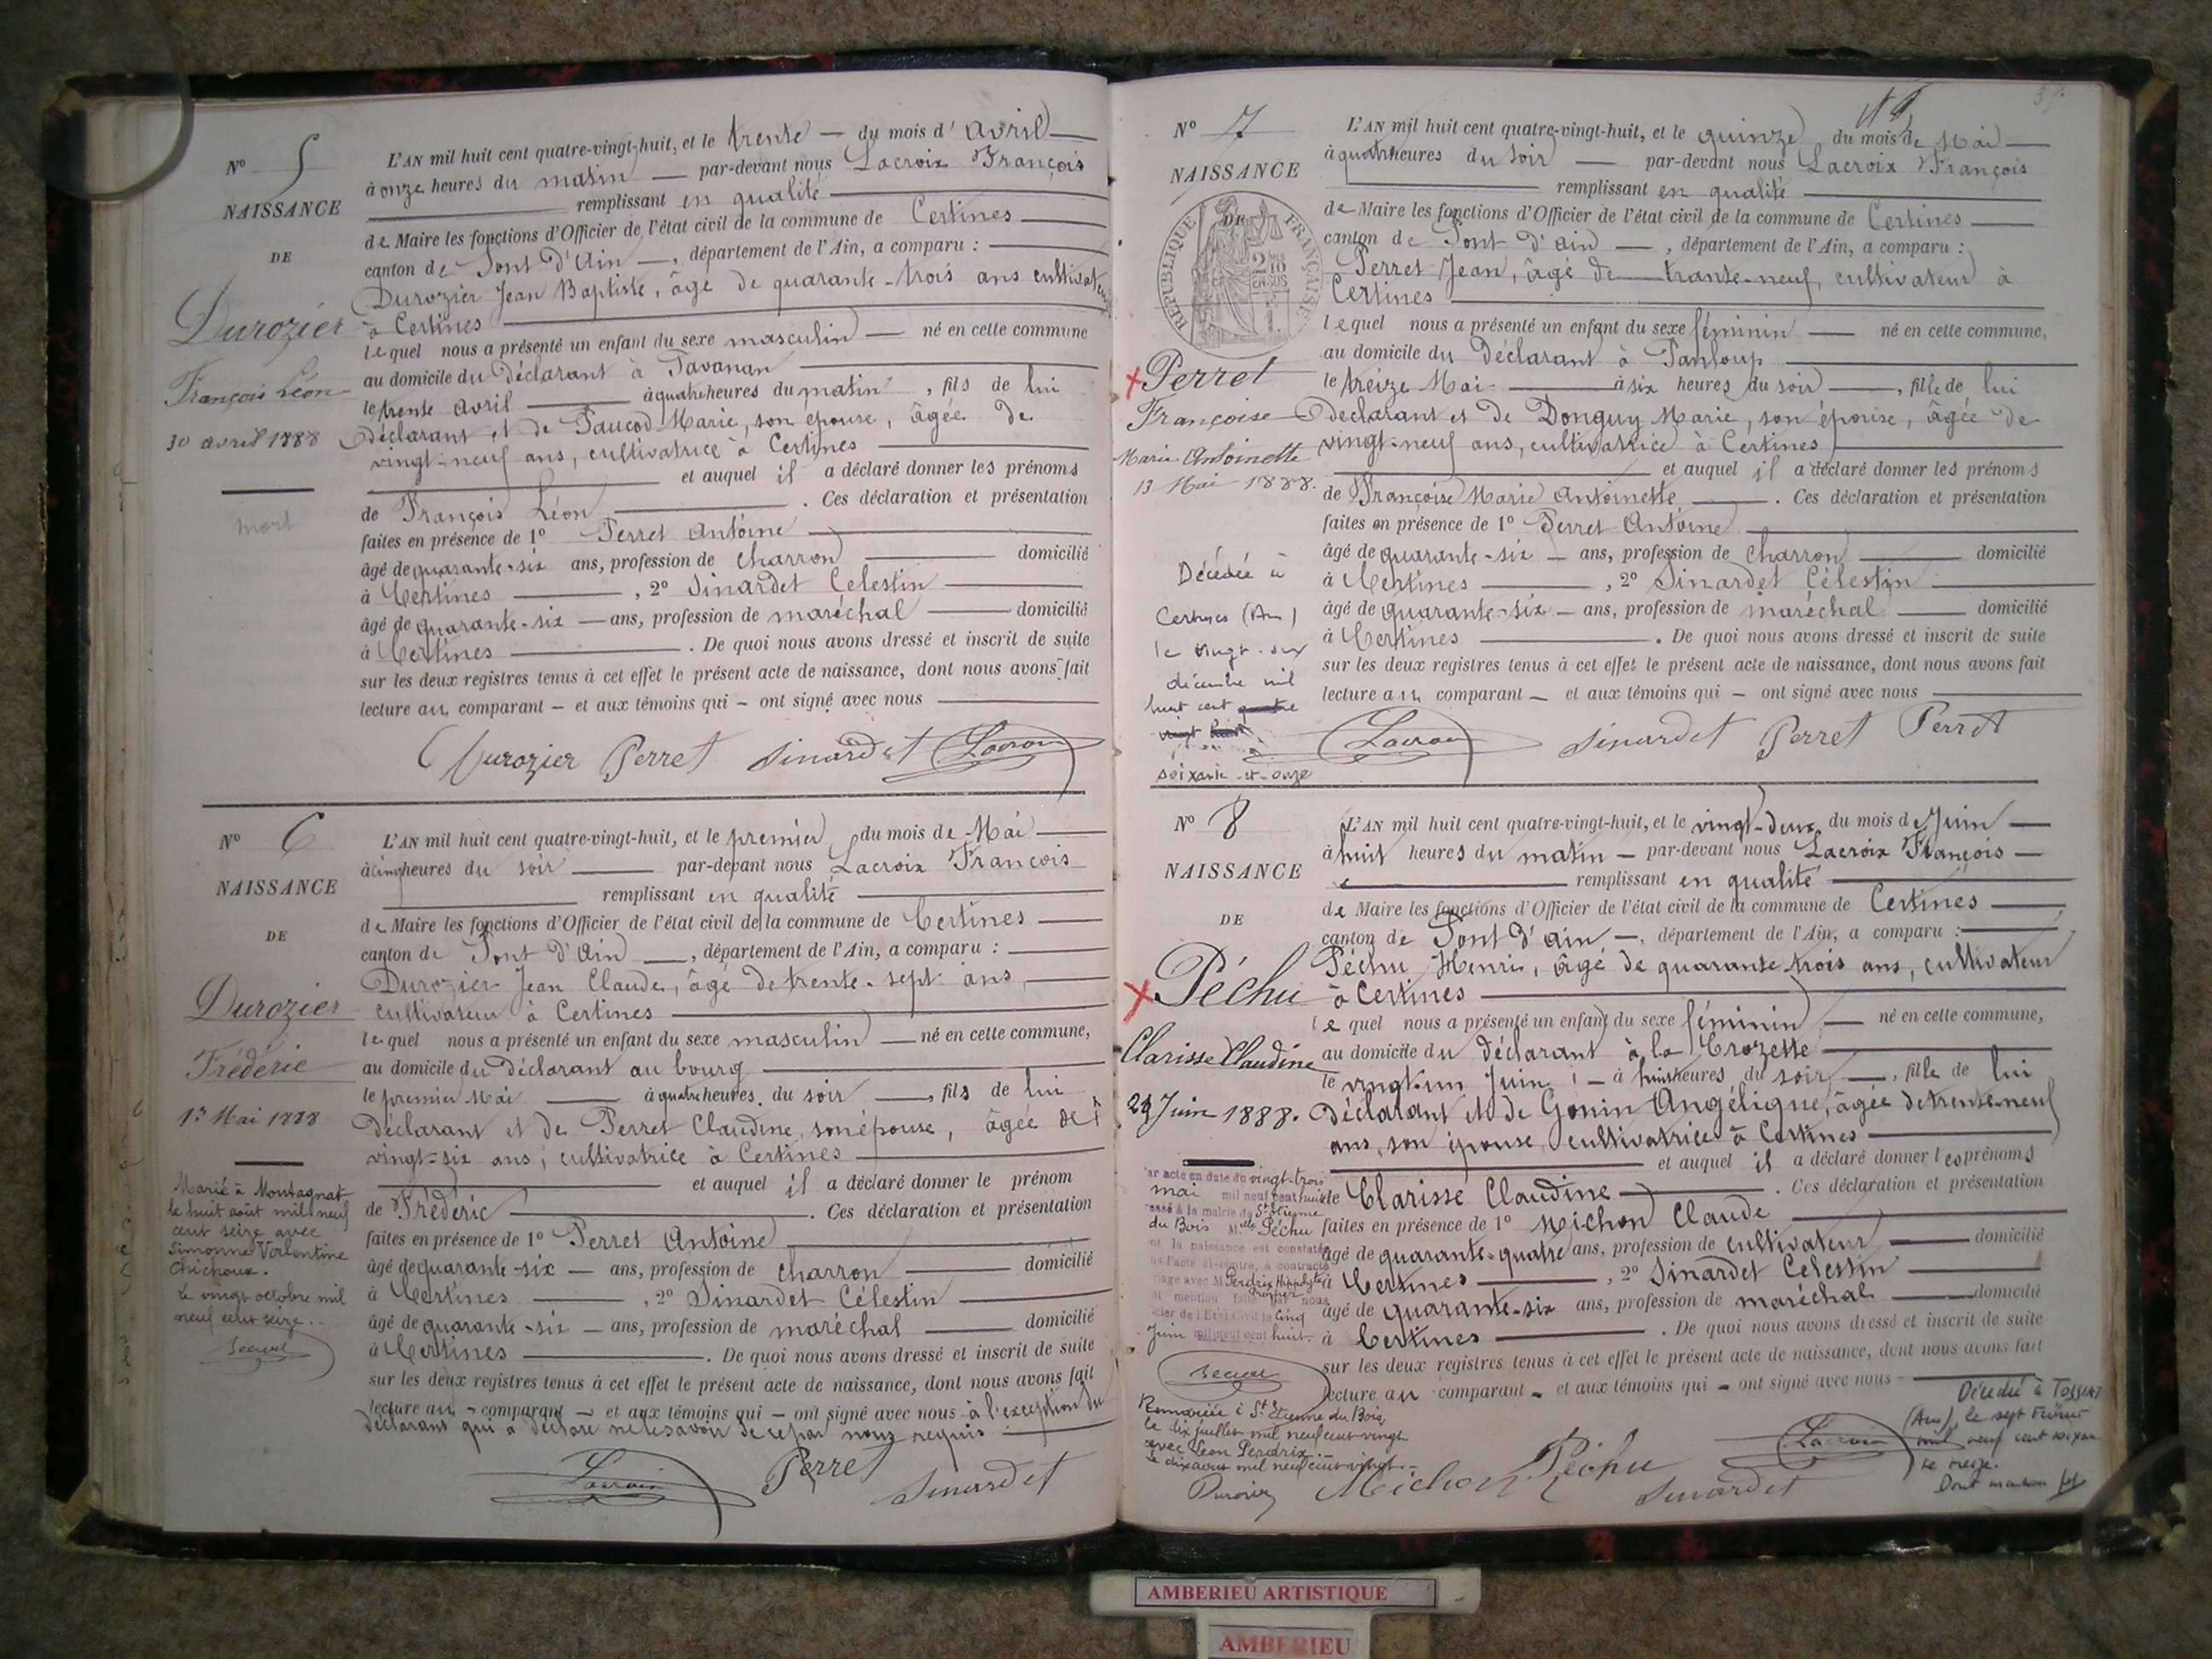 N° 5
NAISSANCE
DE
Durozier
François Léon
30 avril 1888
mort
L'AN mil huit cent quatre-vingt-huit, et le trente — du mois d'avril
à onze heures du matin — par-devant nous Lacroix François
remplissant en qualité
de Maire les fonctions d'Officier de l'état civil de la commune de Certines
canton de Pont d'Ain —, département de l'Ain, a comparu :
Durozier Jean Baptiste, âgé de quarante-trois ans cultivateur
à Certines
lequel nous a présenté un enfant du sexe masculin — né en cette commune
au domicile du Déclarant à Tavanan
le trente avril — à quatre heures du matin, fils de lui
déclarant et de Paucod Marie, son épouse, âgée de
vingt-neuf ans, cultivatrice à Certines
et auquel il a déclaré donner les prénoms
de François Léon. Ces déclaration et présentation
faites en présence de 1° Perret Antoine
âgé de quarante-six ans, profession de charron — domicilié
à Certines —, 2° Sinardet Célestin
âgé de quarante-six — ans, profession de maréchal — domicilié
à Certines —. De quoi nous avons dressé et inscrit de suite
sur les deux registres tenus à cet effet le présent acte de naissance, dont nous avons fait
lecture au comparant — et aux témoins qui — ont signé avec nous
Durozier Perret Sinardet Lacroix
N° 6
NAISSANCE
DE
Durozier
Fréderic
1er Mai 1888
Marié à Montagnat
le huit août mil neuf
cent seize avec
Simonne Valentine
Chichoux.
Le vingt octobre mil
neuf cent seize.
L'AN mil huit cent quatre-vingt-huit, et le premier du mois de Mai
à cinq heures du soir — par-devant nous Lacroix François
remplissant en qualité
de Maire les fonctions d'Officier de l'état civil de la commune de Certines
canton de Pont d'Ain —, département de l'Ain, a comparu :
Durozier Jean Claude, âgé de trente-sept ans,
cultivateur à Certines
lequel nous a présenté un enfant du sexe masculin — né en cette commune,
au domicile du Déclarant au bourg
le premier Mai — à quatre heures du soir —, fils de lui
Déclarant et de Perret Claudine, son épouse, âgée de
vingt-six ans, cultivatrice à Certines
et auquel il a déclaré donner le prénom
de Fréderic. Ces déclaration et présentation
faites en présence de 1° Perret Antoine
âgé de quarante-six — ans, profession de charron — domicilié
à Certines —, 2° Sinardet Célestin
âgé de quarante-six — ans, profession de maréchal — domicilié
à Certines —. De quoi nous avons dressé et inscrit de suite
sur les deux registres tenus à cet effet le présent acte de naissance, dont nous avons fait
lecture au — comparant — et aux témoins qui — ont signé avec nous à l'exception du
déclarant qui a déclaré ne le savoir de ce par nous requis
Lacroix Perret Sinardet
N° 7
NAISSANCE
DE
RÉPUBLIQUE FRANÇAISE
Perret
Françoise
Marie Antoinette
13 Mai 1888.
Décédée à
Certines (Ain)
le vingt-six
décembre mil
huit cent quatre
vingt huit
soixante-et-onze
L'AN mil huit cent quatre-vingt-huit, et le quinze du mois de Mai
à quatre heures du soir — par-devant nous Lacroix François
remplissant en qualité
de Maire les fonctions d'Officier de l'état civil de la commune de Certines
canton de Pont d'ain —, département de l'Ain, a comparu :
Perret Jean, âgé de trente-neuf, cultivateur à
Certines
lequel nous a présenté un enfant du sexe féminin — né en cette commune,
au domicile du Déclarant à Panloup
le treize Mai — à six heures du soir —, fille de lui
Déclarant et de Donguy Marie, son épouse, âgée de
vingt-neuf ans, cultivatrice à Certines
et auquel il a déclaré donner les prénoms
de Françoise Marie Antoinette. Ces déclaration et présentation
faites en présence de 1° Perret Antoine
âgé de quarante-six — ans, profession de charron — domicilié
à Certines —, 2° Sinardet Célestin
âgé de quarante-six — ans, profession de maréchal — domicilié
à Certines —. De quoi nous avons dressé et inscrit de suite
sur les deux registres tenus à cet effet le présent acte de naissance, dont nous avons fait
lecture au comparant — et aux témoins qui — ont signé avec nous
Lacroix Sinardet Perret Perret
N° 8
NAISSANCE
DE
Péchu
Clarisse Claudine
21 Juin 1888.
Par acte en date du vingt-trois
mai mil neuf cent huit
passé à la mairie de St Etienne
du Bois Melle Péchu
dont la naissance est constatée
dans l'acte ci-contre, a contracté
mariage avec M. Perdrix Hippolyte
Prosper
dont mention faite par nous
Officier de l'Etat-Civil le cinq
Juin mil neuf cent huit.
Remariée à St Etienne du Bois,
le dix juillet mil neuf cent vingt
avec Léon Perdrix.
Le dix août mil neuf cent vingt.
Durozier
L'AN mil huit cent quatre-vingt-huit, et le vingt-deux du mois de Juin
à huit heures du matin — par-devant nous Lacroix François
remplissant en qualité
de Maire les fonctions d'Officier de l'état civil de la commune de Certines
canton de Pont d'ain —, département de l'Ain, a comparu :
Péchu Henri, âgé de quarante trois ans, cultivateur
à Certines
lequel nous a présenté un enfant du sexe féminin — né en cette commune,
au domicile du déclarant à la Crozette
le vingt-un Juin — à huit heures du soir —, fille de lui
Déclarant et de Gonin Angélique, âgée de trente-neuf
ans, son épouse, cultivatrice à Certines
et auquel il a déclaré donner les prénoms
de Clarisse Claudine. Ces déclaration et présentation
faites en présence de 1° Michon Claude
âgé de quarante-quatre ans, profession de cultivateur — domicilié
à Certines —, 2° Sinardet Célestin
âgé de quarante-six ans, profession de maréchal — domicilié
à Certines —. De quoi nous avons dressé et inscrit de suite
sur les deux registres tenus à cet effet le présent acte de naissance, dont nous avons fait
lecture au comparant — et aux témoins qui — ont signé avec nous
Michon Péchu Lacroix Sinardet
Décédé à Tossiat
(Ain), le sept Février
mil neuf cent soixan
te treize.
Dont mention
AMBERIEU ARTISTIQUE
AMBERIEU